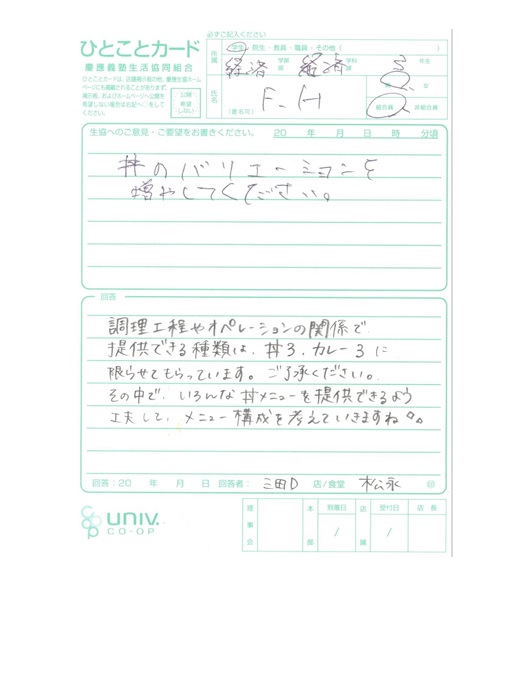 必ずご記入ください
ひとことカード
慶應義塾生活協同組合
ひとことカードは、店舗掲示板の他、慶應生協ホームページにも掲載されることがあります。
掲示板、およびホームページへ公開を希望しない場合は右記へ○をしてください。
公開希望しない
所属
学生・院生・教員・職員・その他（　　　）
経済 学部 経済 学科 3 年生
氏名
F.H
（匿名可）
男・女
組合員・非組合員
生協へのご意見・ご要望をお書きください。 20　年　月　日　時　分頃
丼のバリエーションを
増やしてください。
回答
調理工程やオペレーションの関係で
提供できる種類は、丼3、カレー3に
限らせてもらっています。ご了承ください。
その中で、いろんな丼メニューを提供できるよう
工夫して、メニュー構成を考えていきますね。
回答：20　年　月　日 回答者： 三田D 店/食堂 松永 ㊞
UNIV.
CO-OP
理事会
本部
到着日
/
店舗
受付日
/
店長